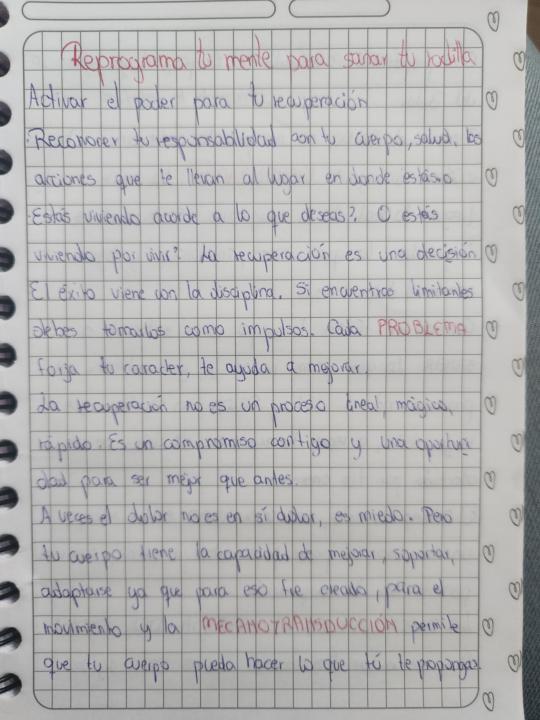 Reprograma tu mente para sanar tu rodilla
Activar el poder para tu recuperación
Reconocer tu responsabilidad con tu cuerpo, salud, las
acciones que te llevan al lugar en donde estás.
Estás viviendo acorde a lo que deseas?. O estás
viviendo por vivir? La recuperación es una decisión
El éxito viene con la disciplina. Si encuentras limitantes
debes tomarlos como impulsos. Cada PROBLEMA
forja tu caracter, te ayuda a mejorar.
La recuperación no es un proceso lineal, mágico,
rápido. Es un compromiso contigo y una oportuni
dad para ser mejor que antes.
A veces el dolor no es en sí dolor, es miedo. Pero
tu cuerpo tiene la capacidad de mejorar, soportar,
adaptarse ya que para eso fue creado, para el
movimiento y la MECANOTRANSDUCCIÓN permite
que tu cuerpo pueda hacer lo que tú te propongas